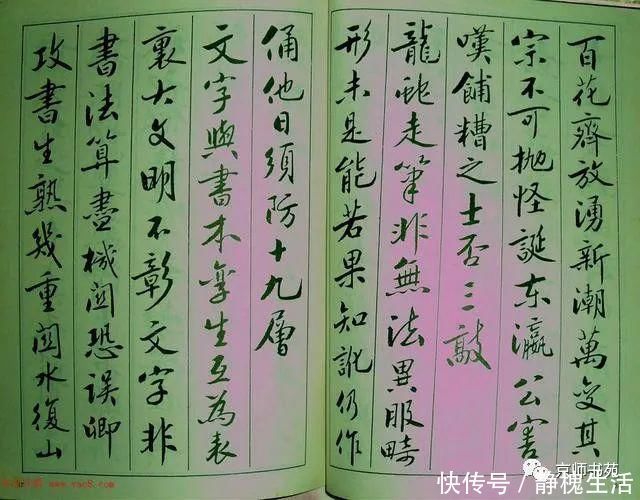 百花齊放湧新潮萬變其
宗不可拋怪誕東瀛公害
嘆餔糟之士否三敲
龍蛇走筆非無法異服畸
形未是能若果知訛仍作
俑他日須防十九層
文字與書本孿生互為表
裏大文明不彰文字非
書法算盡機關恐誤卿
攻書生熟幾重關水復山
京师书苑
快传号／静槐生活
www.yac8.com